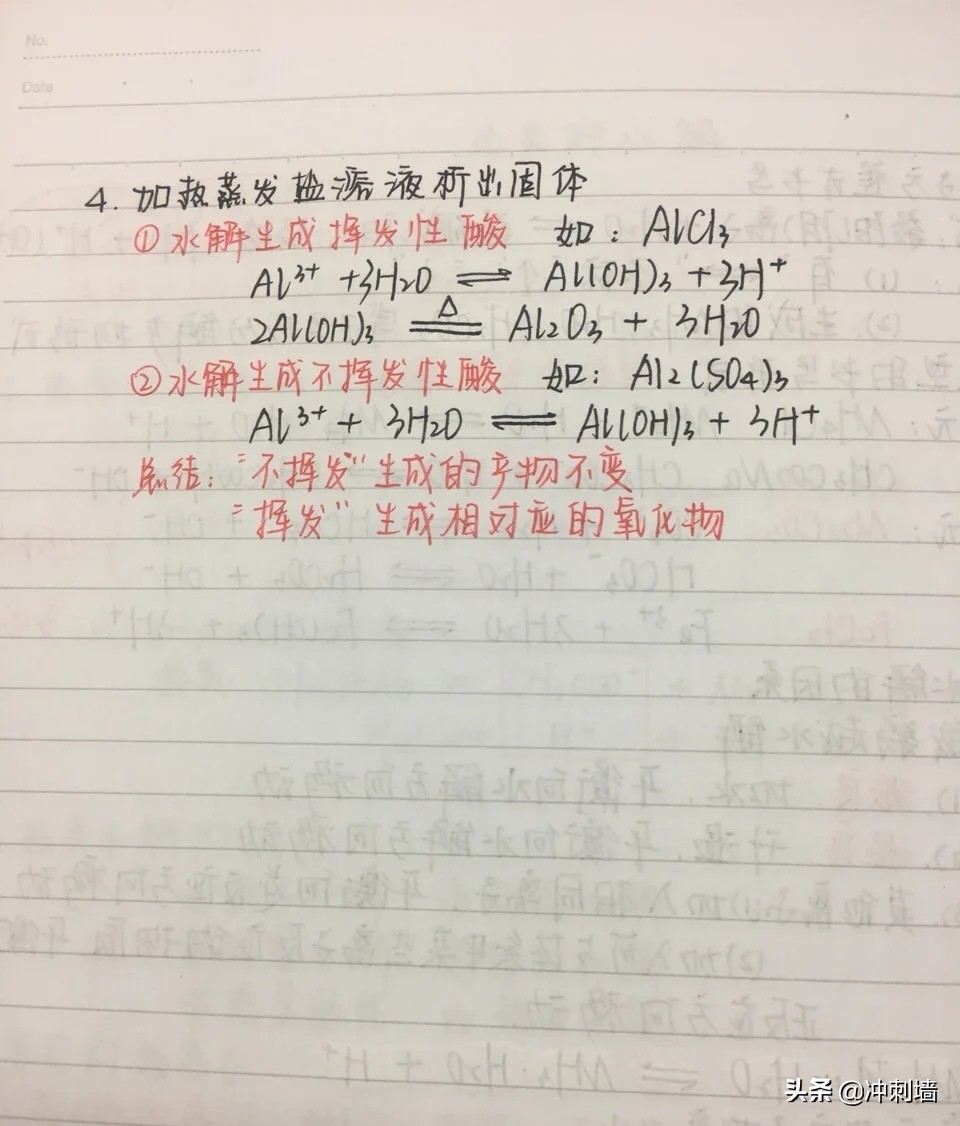 No.
Date
4. 加热蒸发盐溶液析出固体
①水解生成挥发性酸 如：AlCl₃
Al³⁺ + 3H₂O ⇌ Al(OH)₃ + 3H⁺
2Al(OH)₃ ≜ Al₂O₃ + 3H₂O
②水解生成不挥发性酸 如：Al₂(SO₄)₃
Al³⁺ + 3H₂O ⇌ Al(OH)₃ + 3H⁺
总结："不挥发"生成的产物不变
"挥发"生成相对应的氧化物
头条 @冲刺墙